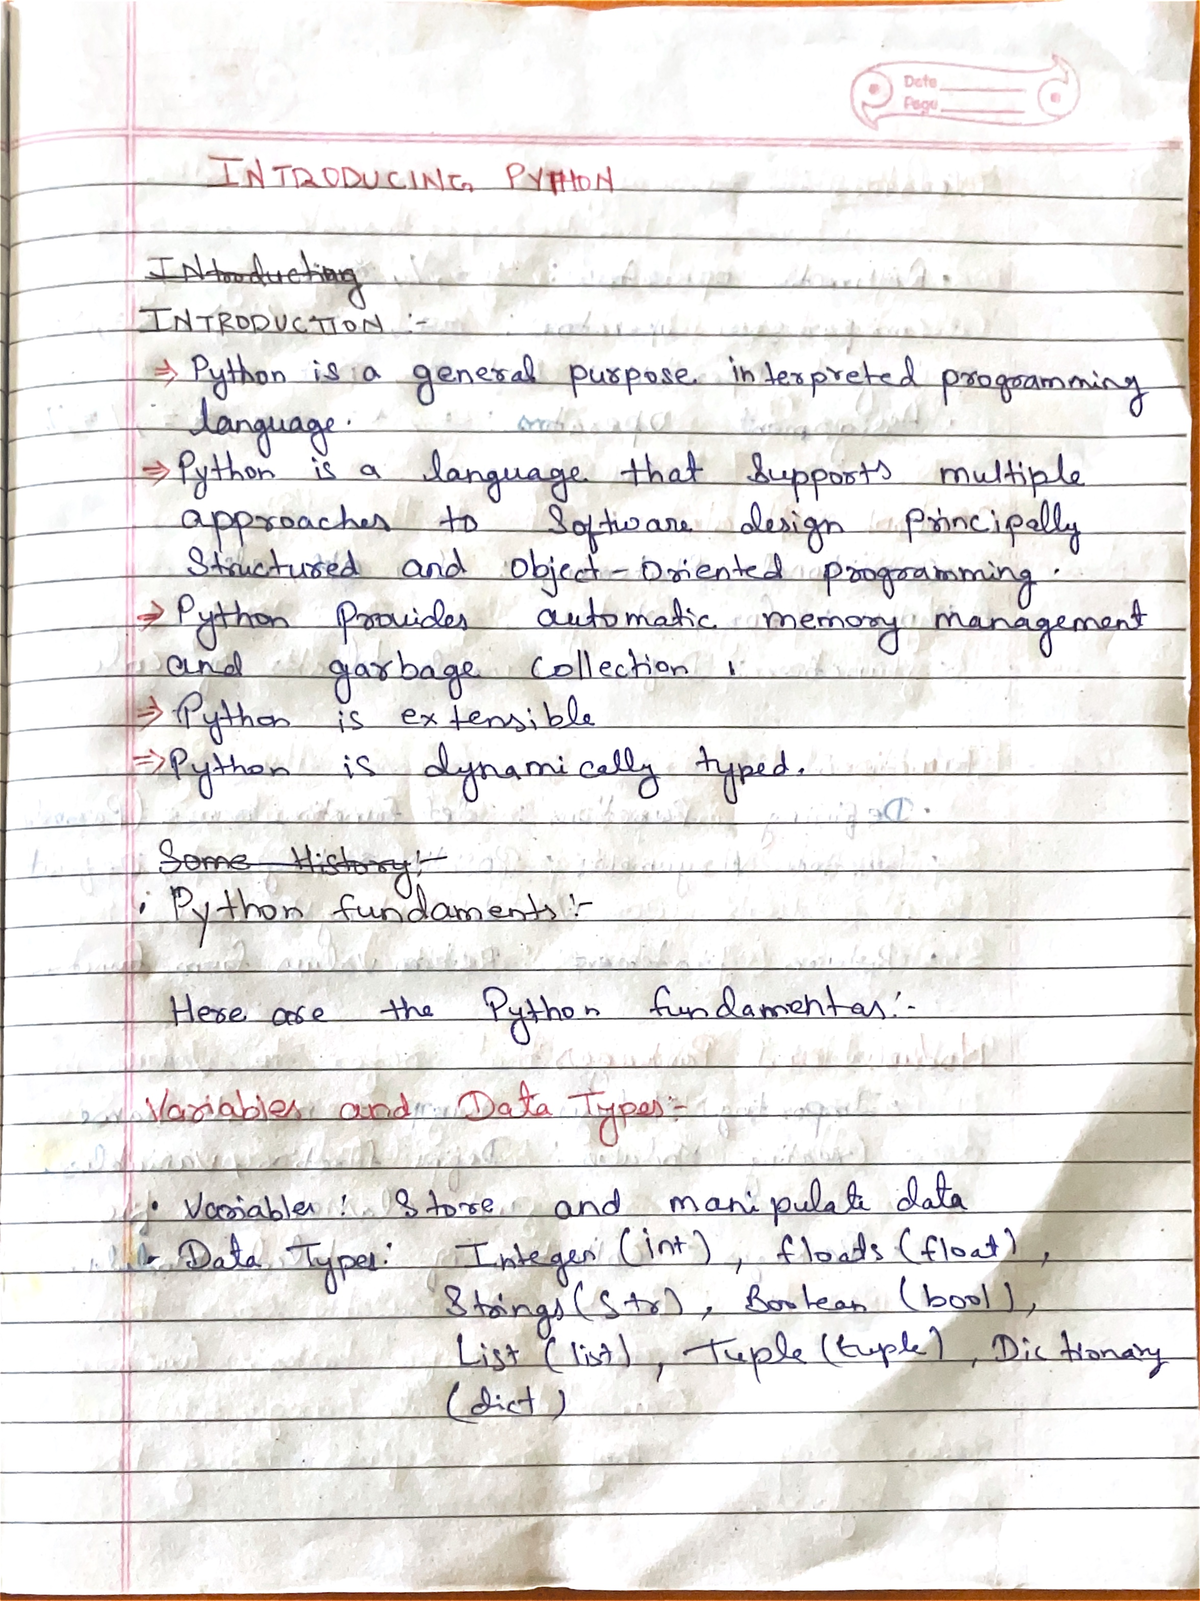 Date
Page
INTRODUCING PYTHON
INtroducting
INTRODUCTION :-
⇒ Python is a general purpose interpreted programming
language.
⇒ Python is a language that supports multiple
approaches to software design principally
Structured and Object-Oriented programming.
⇒ Python Provides automatic memory management
and garbage collection.
⇒ Python is extensible
⇒ Python is dynamically typed.
Some History:-
• Python fundaments:-
Here are the Python fundamentas:-
Variables and Data Types:-
• Variables: Store and manipulate data
• Data Types: Integers (int), floats (float),
Strings (Str), Boolean (bool),
List (list), Tuple (tuple), Dictionary
(dict)